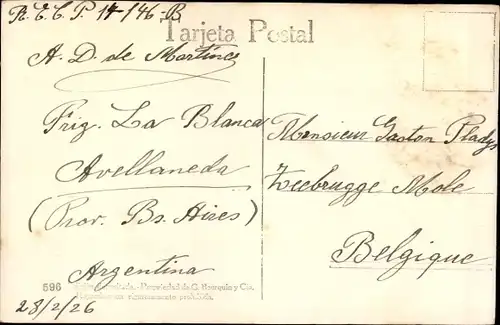 R.E.C.P. 14-146-B
Tarjeta Postal
A. D. de Martinez
Frig. La Blanca
Avellaneda
(Prov. Bs. Aires)
Argentina
28/2/26
Monsieur Gaston Pladys
Zeebrugge Mole
Belgique
596
Propiedad de G. Bourquin y Cia.
rigurosamente prohibida.